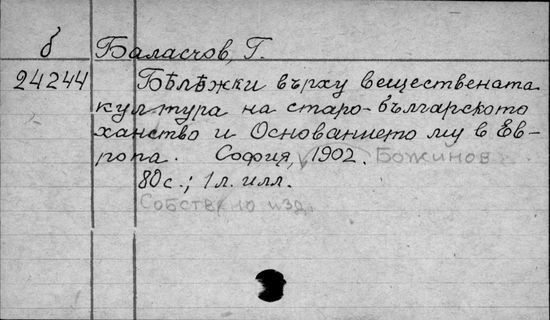 б Баласчов, Г.
24244 Бѣлѣжки върху веществената
култура на старо-българското
ханство и Основанието му в Ев-
ропа. София, 1902. Божинов
80 с.; 1 л. илл.
Собствено изд.